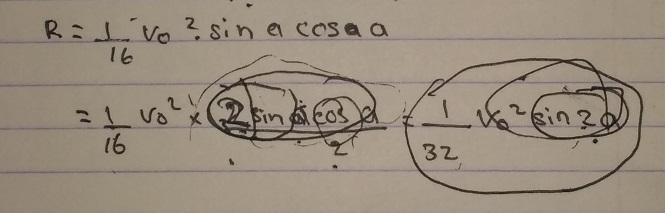 R = 1/16 v₀² · sin a cos a a
= 1/16 v₀² × 2 sin a cos a / 2 = 1/32 v₀² sin 2a